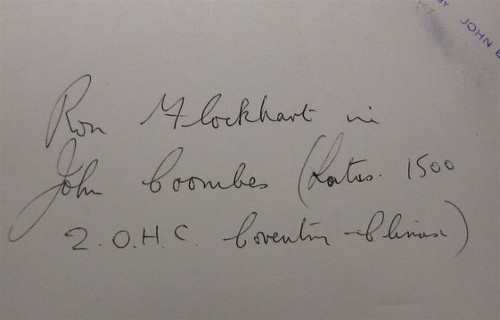 BY JOHN
Ron Flockhart in
John Coombes (Lotus. 1500
2.O.H.C. Coventry-Climax)